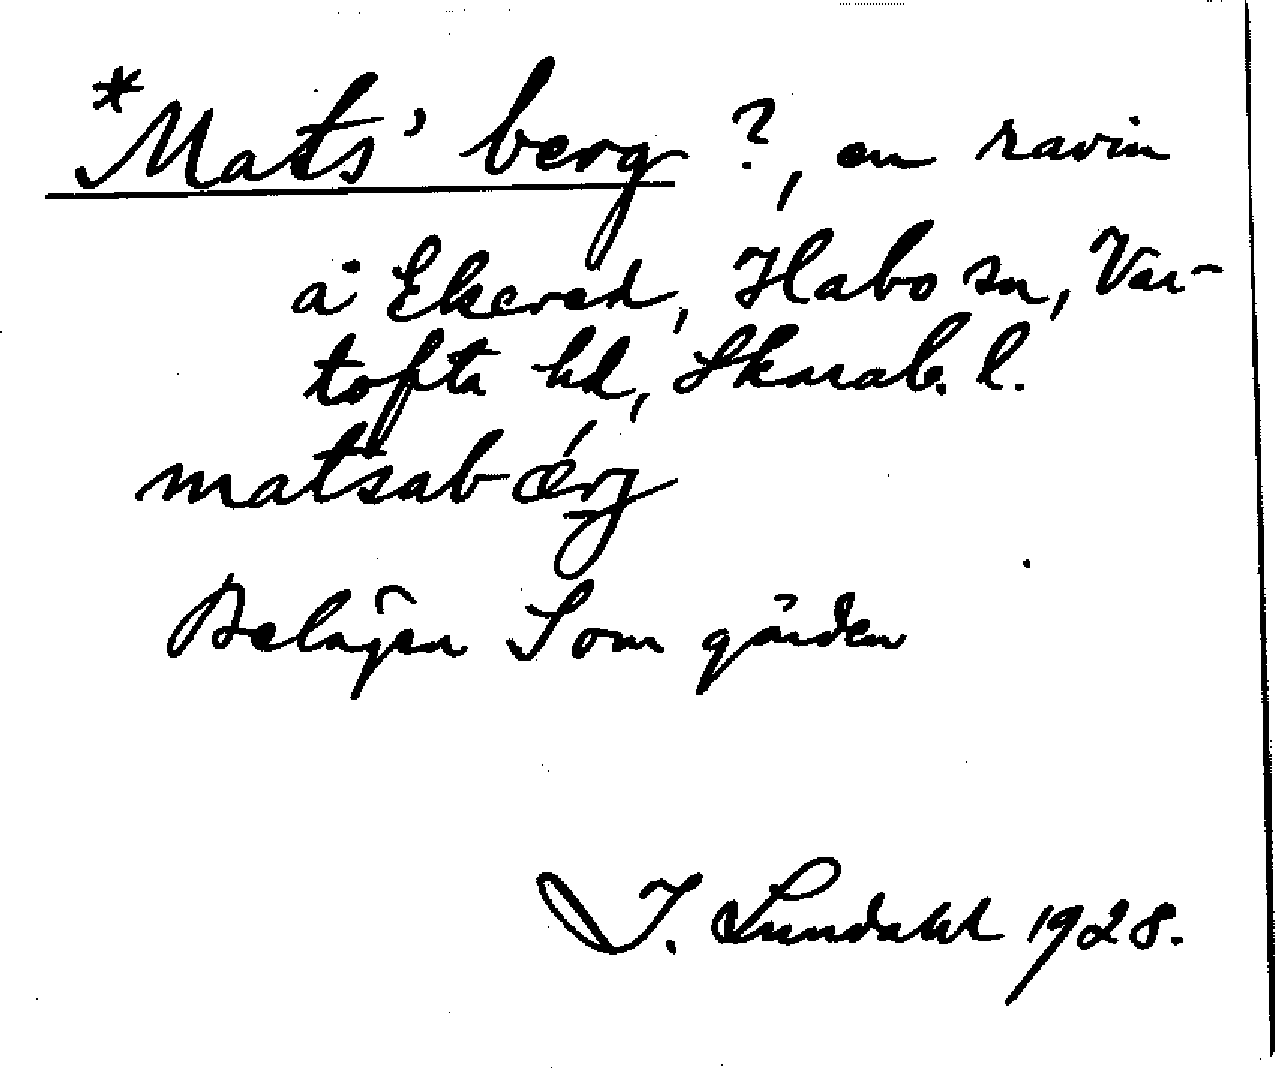 *Mats' berg ?, en ravin
å Ekered, Habo sn, Var-
tofta hd, Skarab. l.
matsabǽrj
Belägen S om gården
I. Lundahl 1928.